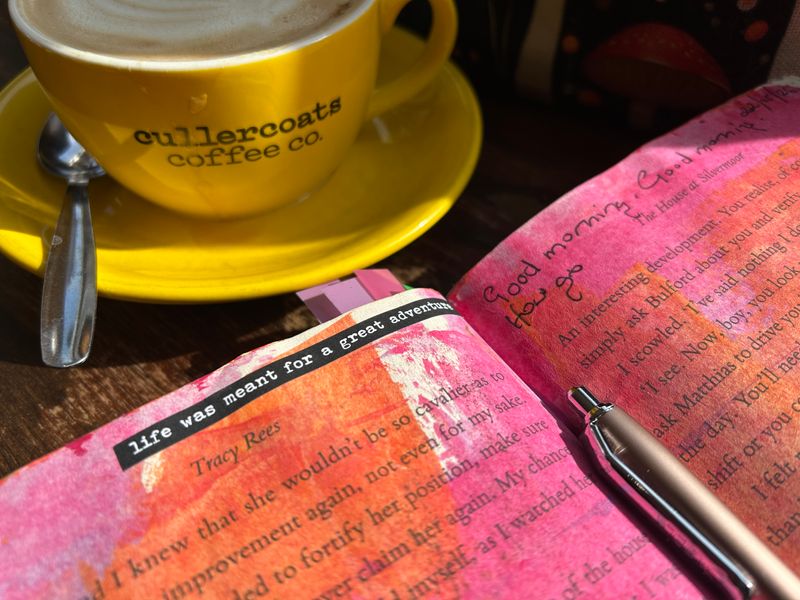 cullercoats
coffee co.
life was meant for a great adventure
Tracy Rees
I knew that she wouldn't be so cavalier as to
improvement again, not even for my sake.
to fortify her position, make sure
claim her again. My chance
myself, as I watched
of the house
I was
Good morning. Good morning.
How go
The House at Silvermoor
An interesting development. You realise, of
simply ask Bulford about you and
I scowled. I've said nothing I
'I see. Now, boy, you look
ask Matthias to drive you
the day. You'll need
shift or you
I felt
than